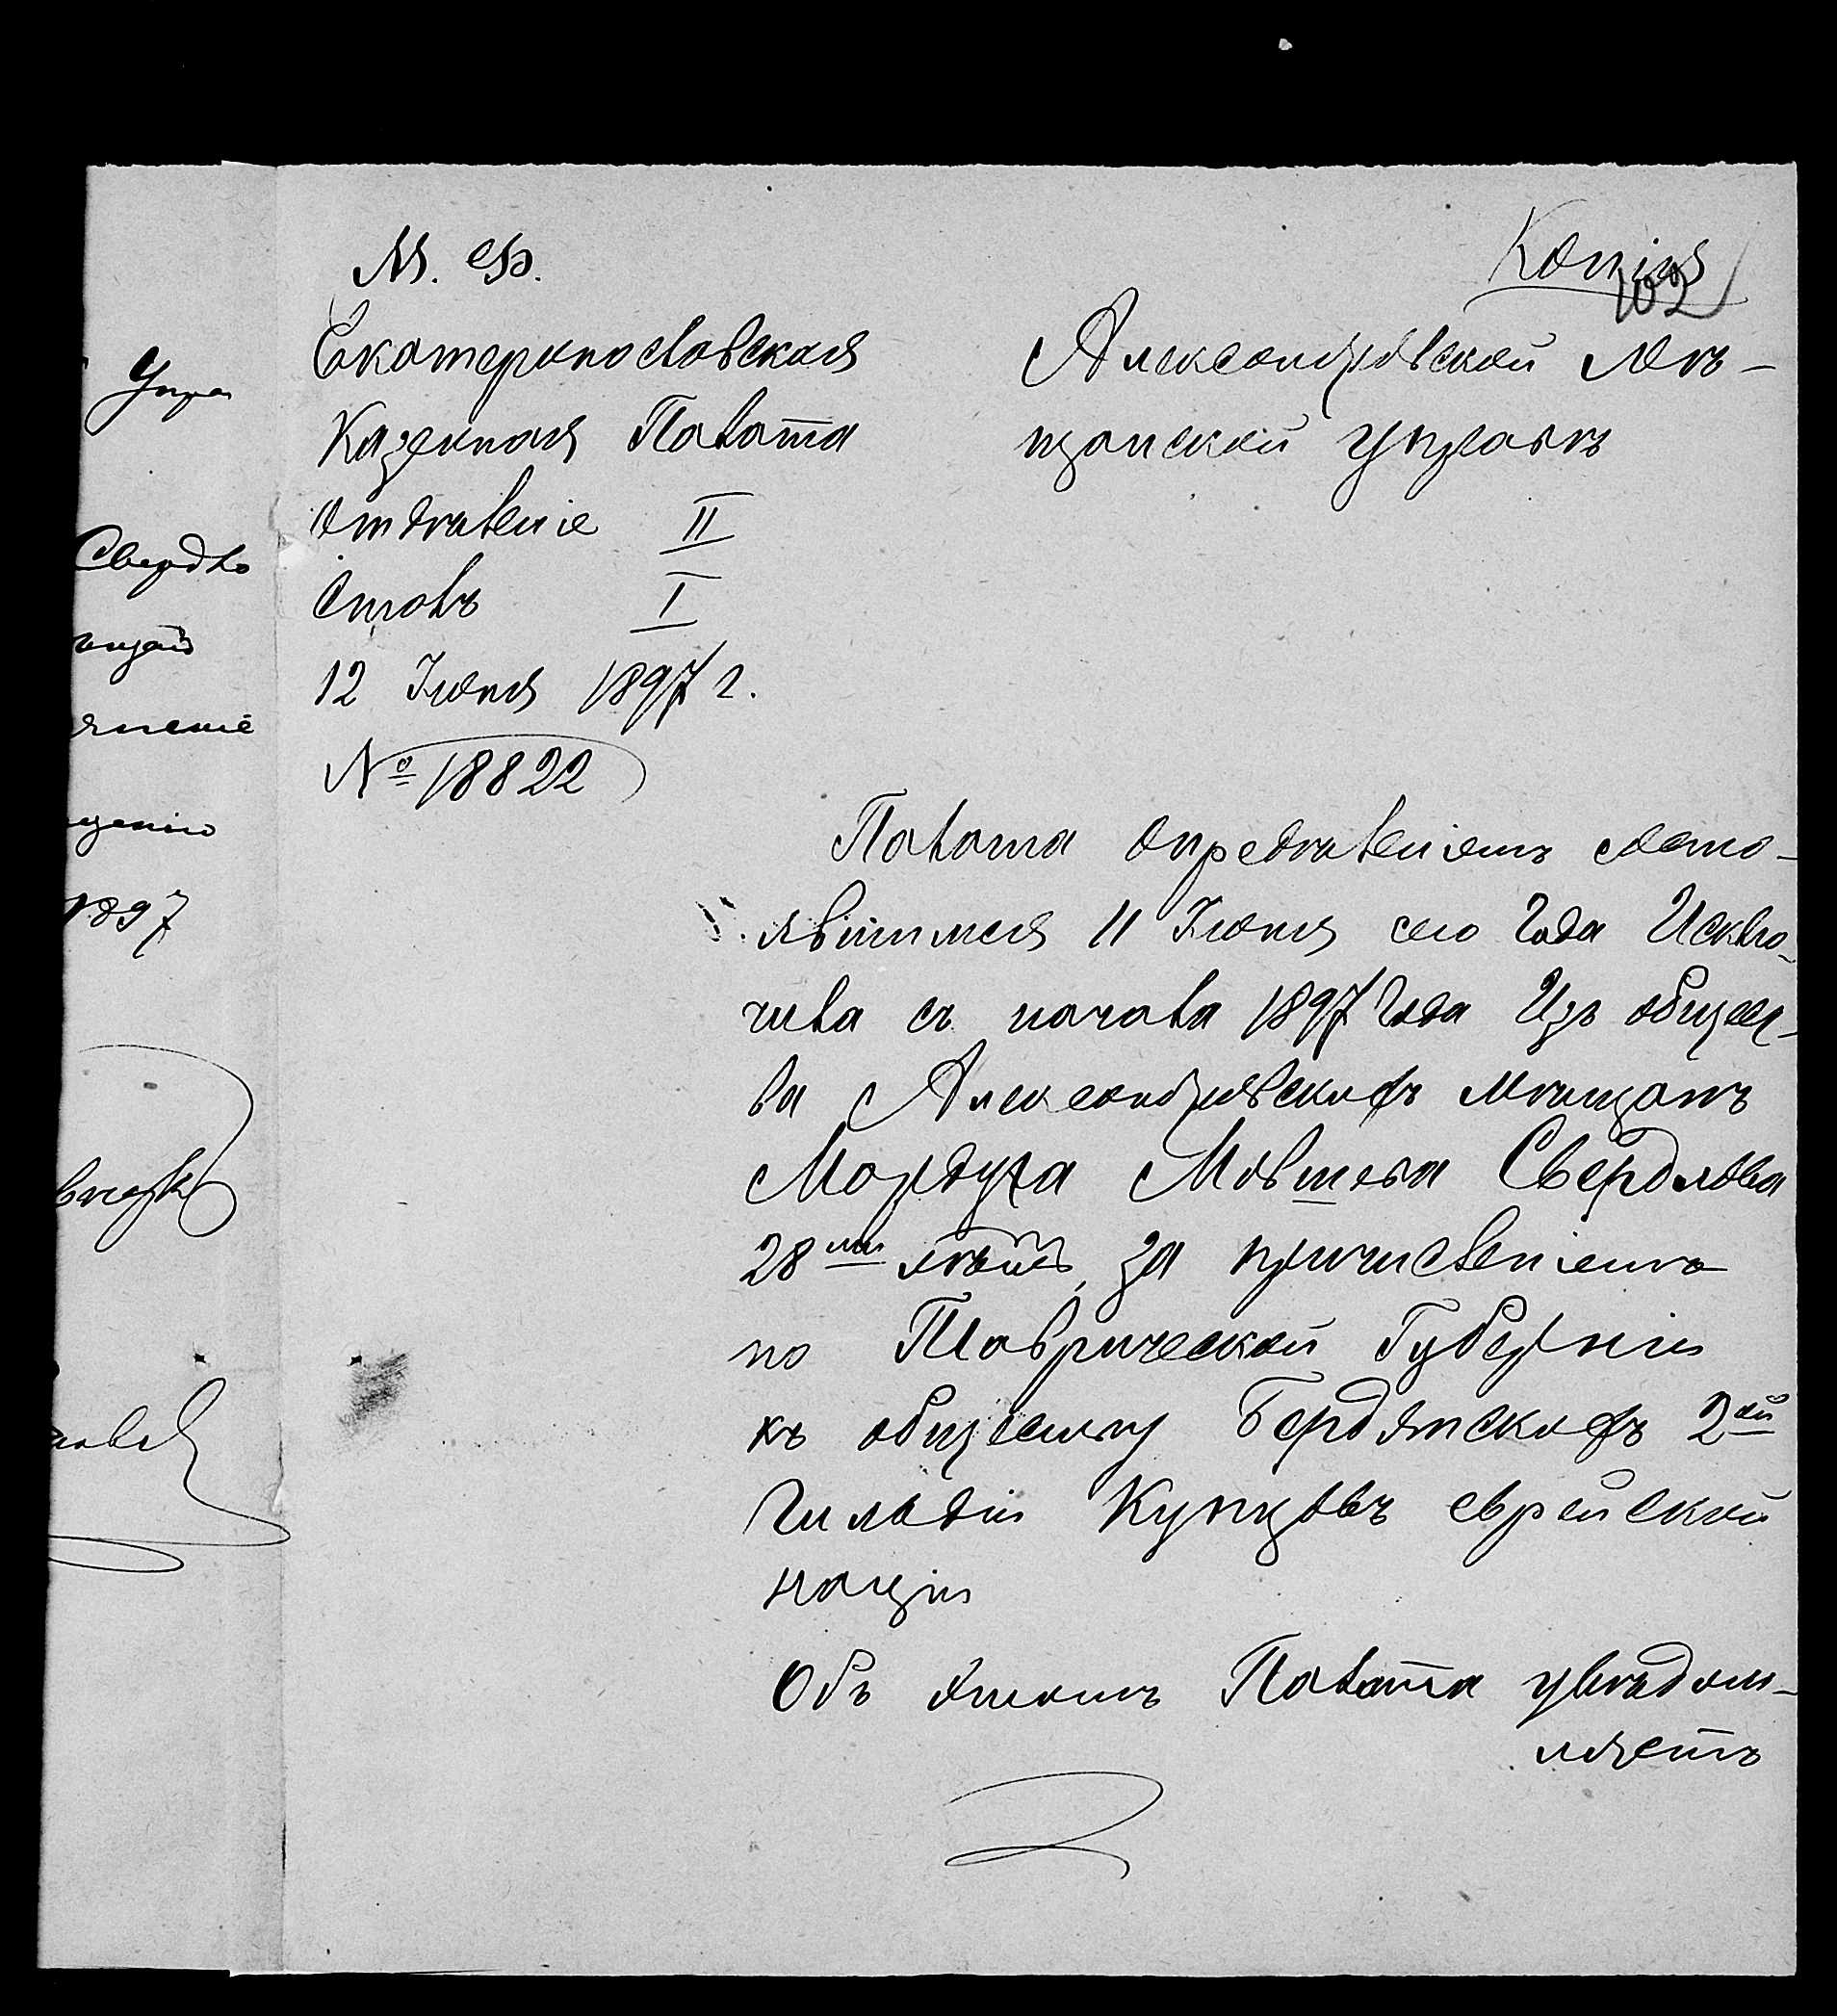 Упра
Свердло
1897
М. Ф.
Копія
102
Екатеринославская
Казенная Палата
Отдѣленіе II
Столъ I
12 Іюня 1897 г.
№ 18822
Александровской Мѣ-
щанской Управѣ
Палата опредѣленіемъ состо-
явшимся 11 Іюня сего Года Исклю-
чила съ начала 1897 Года Изъ общест-
ва Александровскихъ мѣщанъ
Мордуха Мовшева Свердлова
28ми лѣтъ, за причисленіемъ
по Таврической Губерніи
къ обществу Бердянскихъ 2ой
Гильдіи Купцовъ еврейской
націи
Объ этомъ Палата увѣдом-
ляетъ